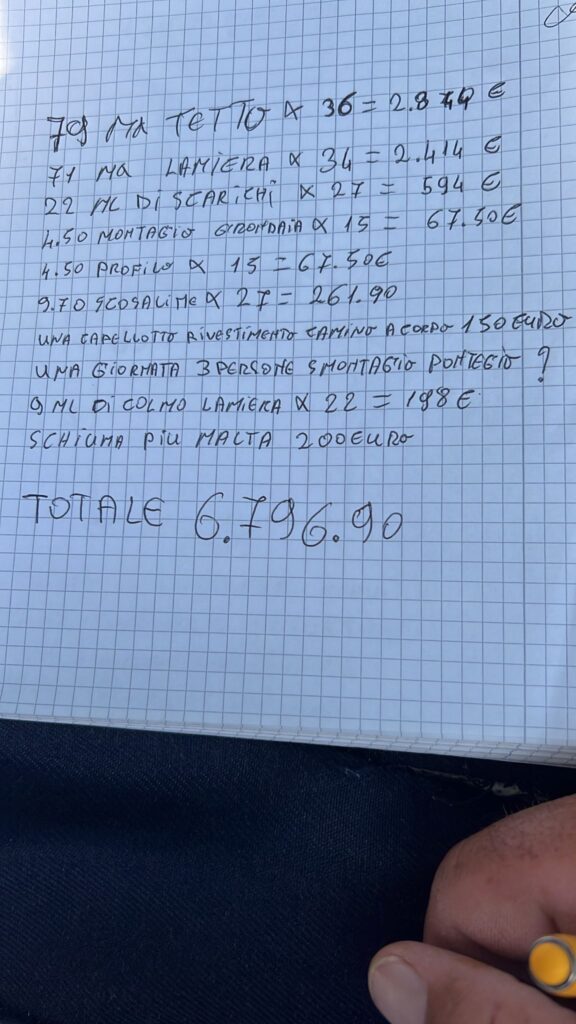 79 MQ TETTO X 36 = 2.844 €
71 MQ LAMIERA X 34 = 2.414 €
22 ML DI SCARICHI X 27 = 594 €
4.50 MONTAGIO GRONDAIA X 15 = 67.50€
4.50 PROFILO X 15 = 67.50€
9.70 SCOSALINE X 27 = 261.90
UNA CAPELLOTTO RIVESTIMENTO CAMINO A CORPO 150 EURO
UNA GIORNATA 3 PERSONE SMONTAGIO PONTEGIO ?
9 ML DI COLMO LAMIERA X 22 = 198 €
SCHIUMA PIU MALTA 200 EURO
TOTALE 6.796.90